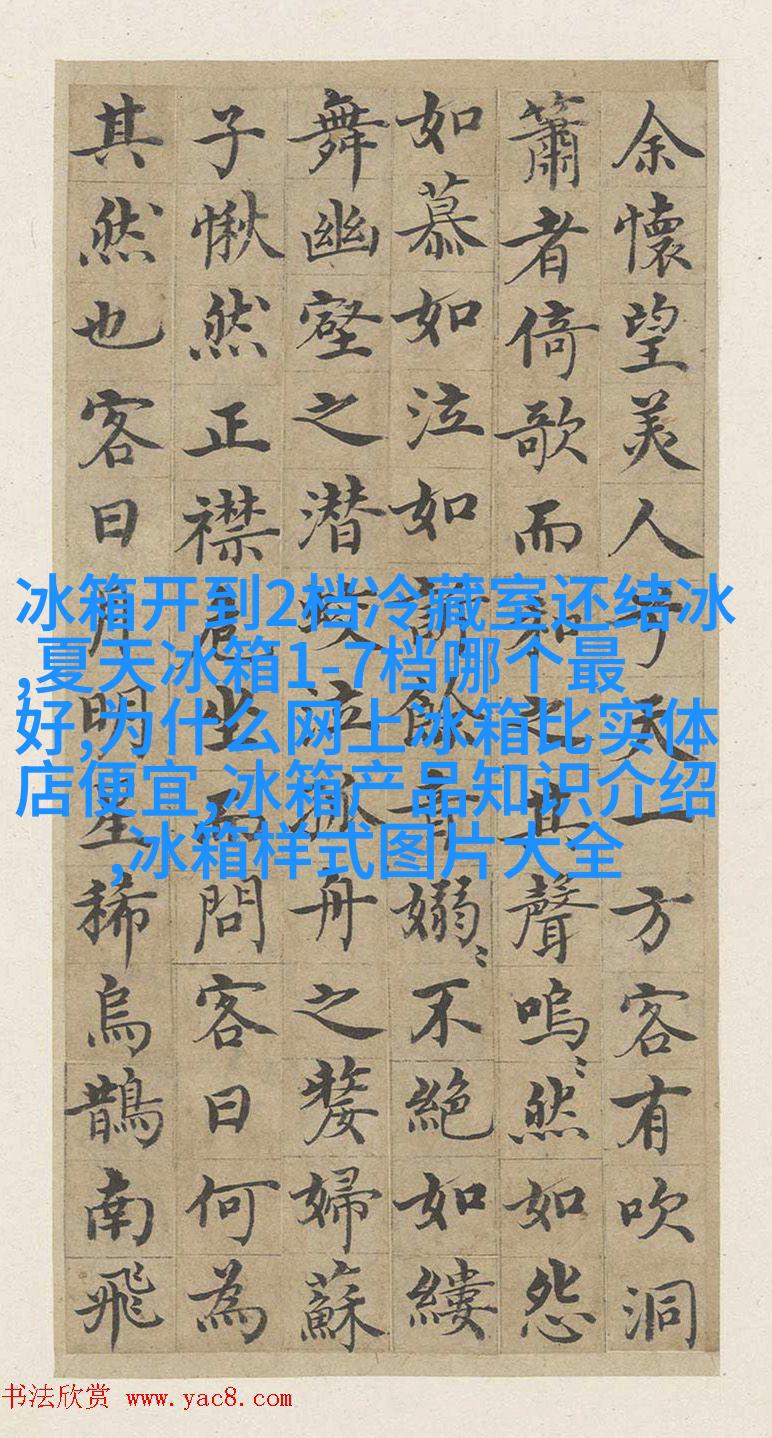 余懷望美人兮天一方客有吹洞
簫者倚歌而和之其聲嗚〻然如怨
如慕如泣如訴餘音嫋〻不絕如縷
舞幽壑之潜蛟泣孤舟之嫠婦蘇
子愀然正襟危坐而問客曰何為
其然也客曰月明星稀烏鵲南飛
冰箱开到2档冷藏室还结冰
,夏天冰箱1-7档哪个最
好,为什么网上冰箱比实体
店便宜,冰箱产品知识介绍
,冰箱样式图片大全
书法欣赏 www.yac8.com